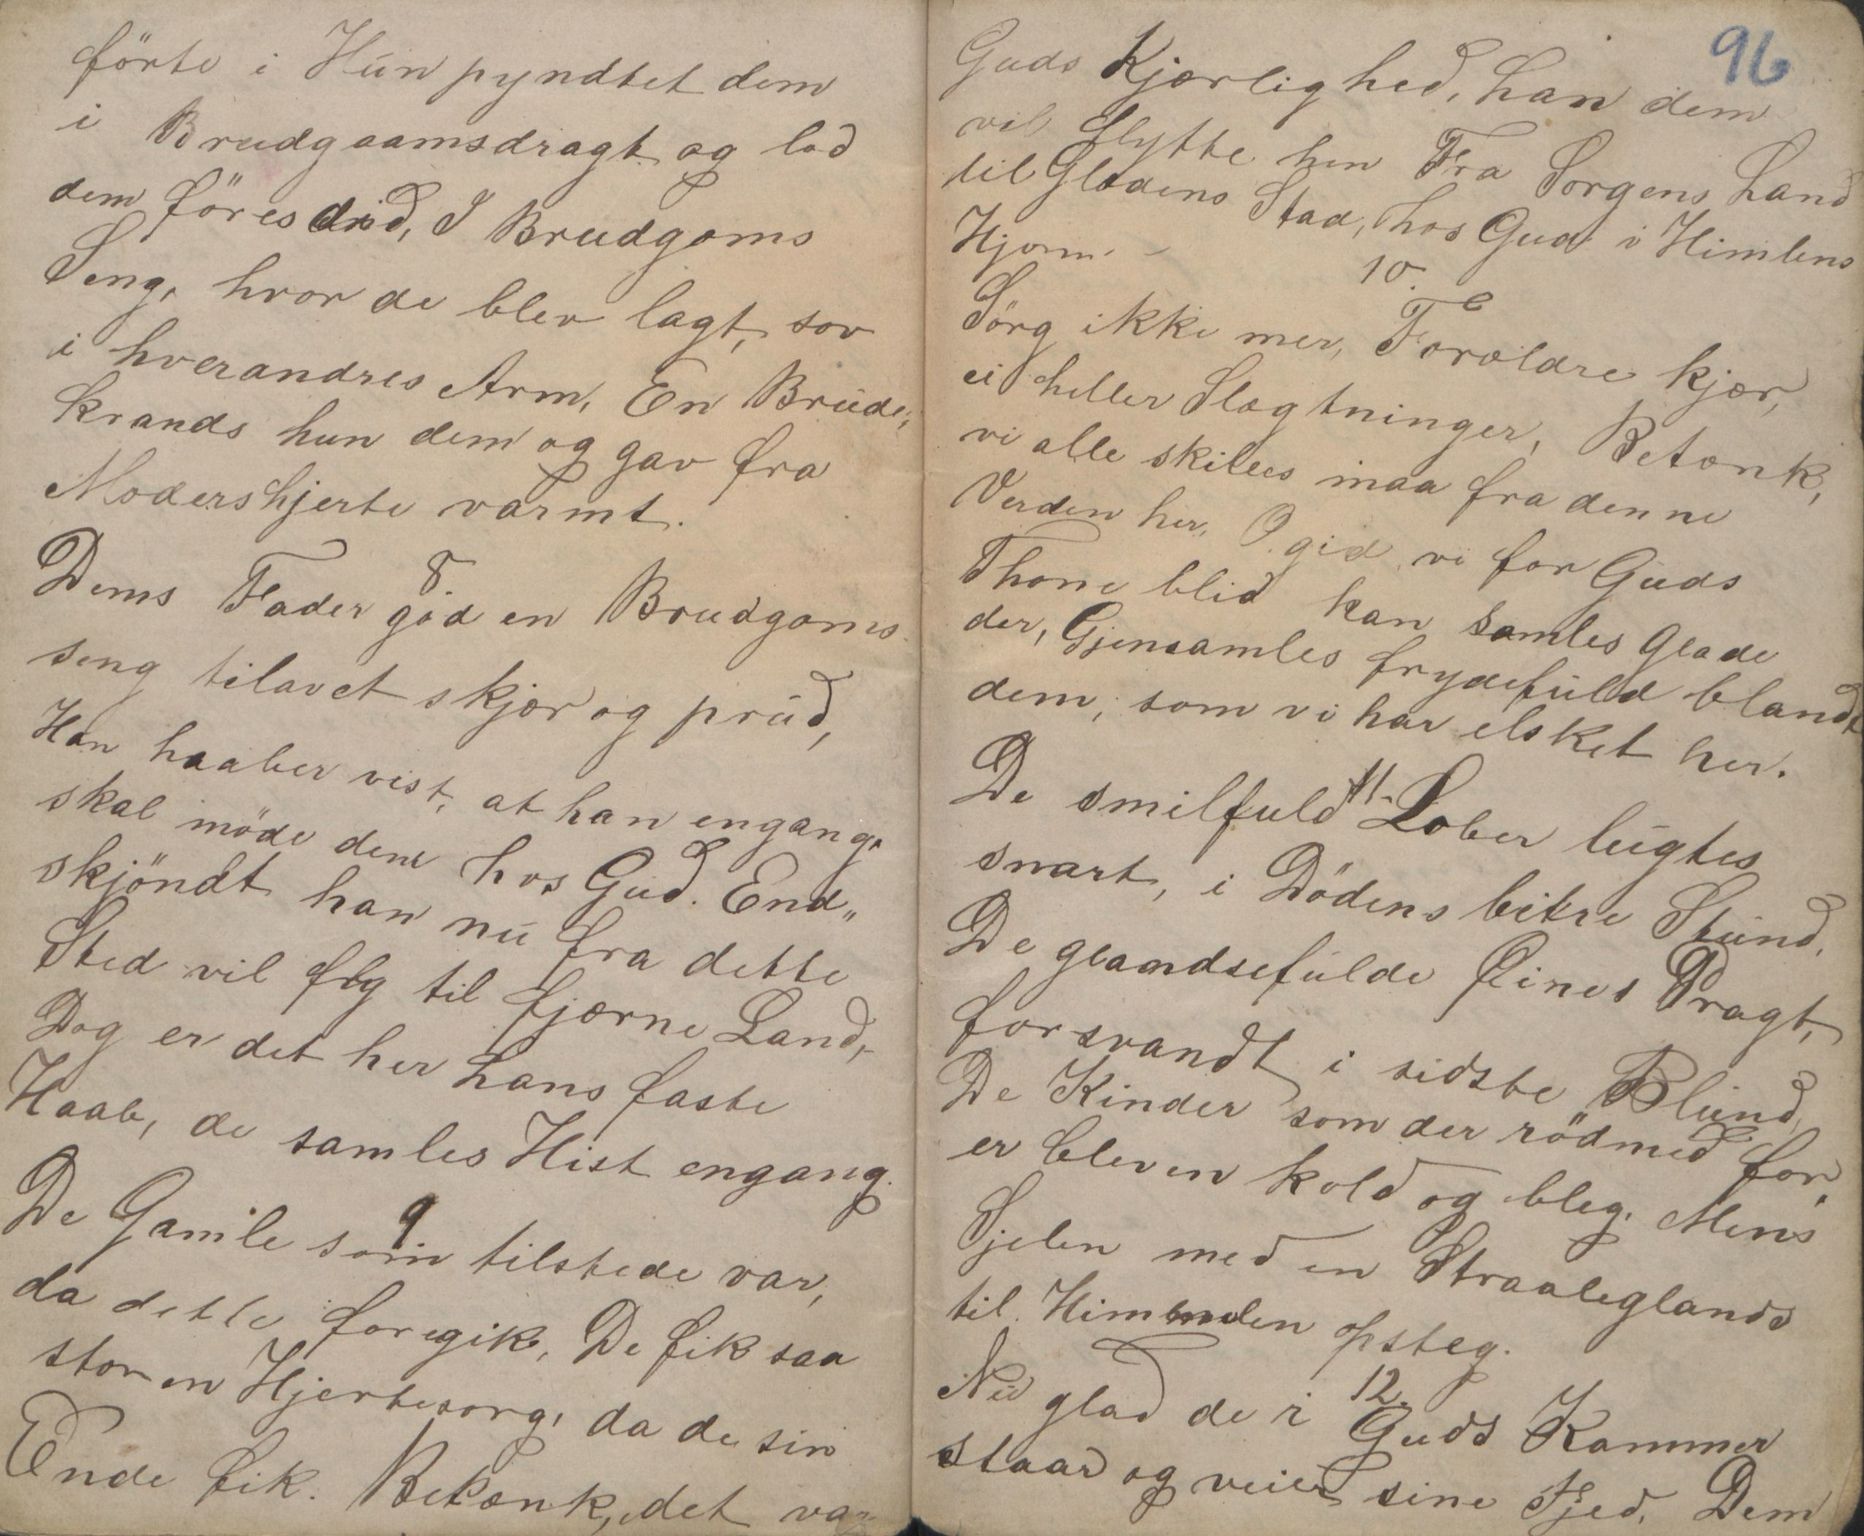 förte i Hun pyndtet dem
i Brudgaamsdragt og lod
dem föres did, I Brudgoms
Seng, hvor de blev lagt, sov
i hverandres Arm, En Brude„
krands hun dem og gav fra
Modershjerte varmt.
8
Dems Fader god en Brudgoms
seng tilavet skjær og prud,
Han haaber vist, at han engang,
skal möde dem hos Gud. End„
skjöndt han nu fra dette
Sted vil fly til fjærne Land,
Dog er det her hans faste
Haab, de samles Hist engang.
9
De Gamle som tilstede var,
da dette foregik, De fik saa
stor en Hjertesorg, da de sin
Ende fik. Betænk, det var
96
Guds Kjærlighed, han dem
vil flytte hen Fra Sorgens Land
til Glædens Stad, hos Gud i Himlens
Hjem.
10.
Sörg ikke mer, Foræeldre kjær,
ei heller Slægtninger, Betænk,
vi alle skilles maa fra denne
Verden her, O gid vi for Guds
Thone blid kan samles glade
der, Gjensamles frydefuld blandt
dem, som vi har elsket her.
11.
De smilfuld Læber lugtes
snart, i Dödens bitre Stund,
De glandsefulde Öines Pragt,
forsvandt i sidste Blund,
De Kinder som der rödmed for,
er bleven kold og bleg, Mens
Sjelen med en Straaleglands
til Himmelen opsteg.
12.
Nu glad de i Guds Kammer
staar og veier sine Fjed, Dem